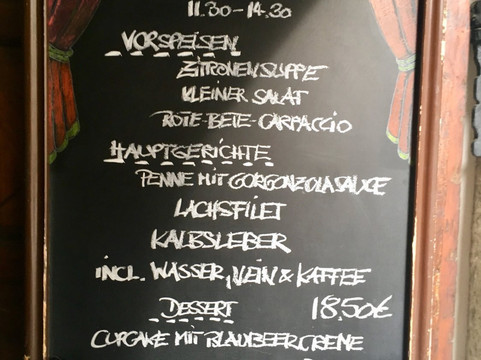 11.30-14.30
VORSPEISEN
ZITRONENSUPPE
KLEINER SALAT
ROTE-BETE-CARPACCIO
HAUPTGERICHTE
PENNE MIT GORGONZOLASAUCE
LACHSFILET
KALBSLEBER
INCL. WASSER, WEIN & KAFFEE
DESSERT 18,50€
CUPCAKE MIT BLAUBEERCREME